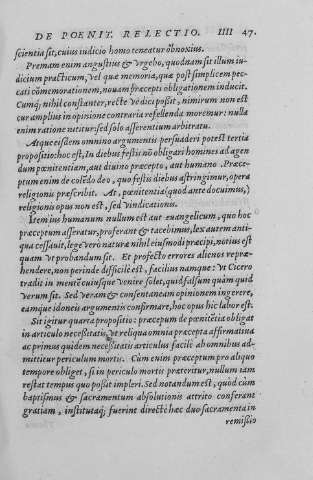 DE POENIT. RELECTIO. IIII 47.
scientia sit, cuius iudicio homo teneatur obnoxius.
Premam enim angustius & vrgebo, quodnam sit illum iu-
dicium practicum, vel quæ memoria, quæ post simplicem pec-
cati cõmemorationem, nouam præcepti obligationem inducit.
Cumq́; nihil constanter, recte ve dici possit, nimirum non est
cur amplius in opinione contraria refellenda moremur: nulla
enim ratione nititur: sed solo asserentium arbitratu.
Atque eisdem omnino argumentis persuaderi potest tertia
propositio: hoc est, In diebus festis nõ obligari homines ad agen
dum pœnitentiam, aut diuino præcepto, aut humano. Præce-
ptum enim de colẽdo deo, quo festis diebus astringimur, opera
religionis præscribit. At, pœnitentia (quod ante docuimus,)
religionis opus non est, sed vindicationis.
Item ius humanum nullum est aut euangelicum, quo hoc
præceptum asseratur, proferant & tacebimus, lex autem anti-
qua cessauit, lege vero naturæ nihil eiusmodi præcipi, notius est
quam vt probandum sit. Et profecto errores alienos repræ-
hendere, non perinde difficile est, facilius namque: vt Cicero
tradit in mentẽ cuiusque venire solet, quid falsum quàm quid
verum sit. Sed veram & consentaneam opinionem ingerere,
eamque idoneis argumentis confirmare, hoc opus hic labor est.
Sit igitur quarta propositio: præceptum de pœnitẽtia obligat
in articulo necessitatis, vt reliqua omnia præcepta affirmatiua
ac primus quidem necessitatis articulus facilè ab omnibus ad-
mittitur periculum mortis. Cùm enim præceptum pro aliquo
tempore obliget, si in periculo mortis præteritur, nullum iam
restat tempus quo possit impleri. Sed notandum est, quòd cùm
baptismus & sacramentum absolutionis attrito conferant
gratiam, institutaq́; fuerint directè hæc duo sacramenta in
remissio